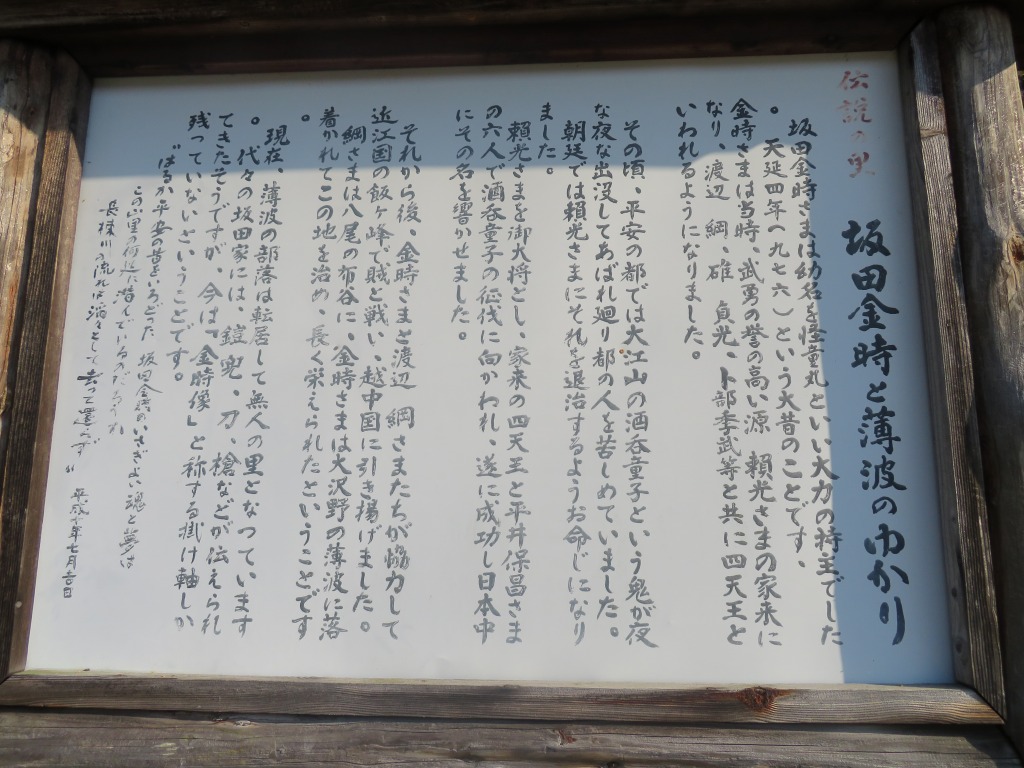 伝説の里
坂田金時と薄波のゆかり
坂田金時さまは幼名を怪童丸といい大力の持主でした
。天延四年(九七六)という大昔のことです、
金時さまは当時、武勇の誉の高い源 頼光さまの家来に
なり、渡辺 綱、碓 貞光、卜部季武等と共に四天王と
いわれるようになりました。
その頃、平安の都では大江山の酒呑童子という鬼が夜
な夜な出没してあばれ廻り都の人を苦しめていました。
朝廷では頼光さまにそれを退治するようお命じになり
ました。
頼光さまを御大将とし、家来の四天王と平井保昌さま
の六人で酒呑童子の征伐に向かわれ、遂に成功し日本中
にその名を響かせました。
それから後、金時さまと渡辺 綱さまたちが協力して
近江国の飯ヶ峰で賊と戦い、越中国に引き揚げました。
綱さまは八尾の布谷に、金時さまは大沢野の薄波に落
着かれてこの地を治め、長く栄えられたということです
。
現在、薄波の部落は転居して無人の里となっています
。代々の坂田家には、鎧兜、刀、槍などが伝えられ
てきたそうですが、今は「金時像」と称する掛け軸しか
残っていないということです。
〝はるか平安の昔をいろどった 坂田金時のいさぎよい魂と夢は
この山里の何処に潜んでいるのだろうか
長棟川の流れは滔々として去って還らず〟
平成十年七月吉日